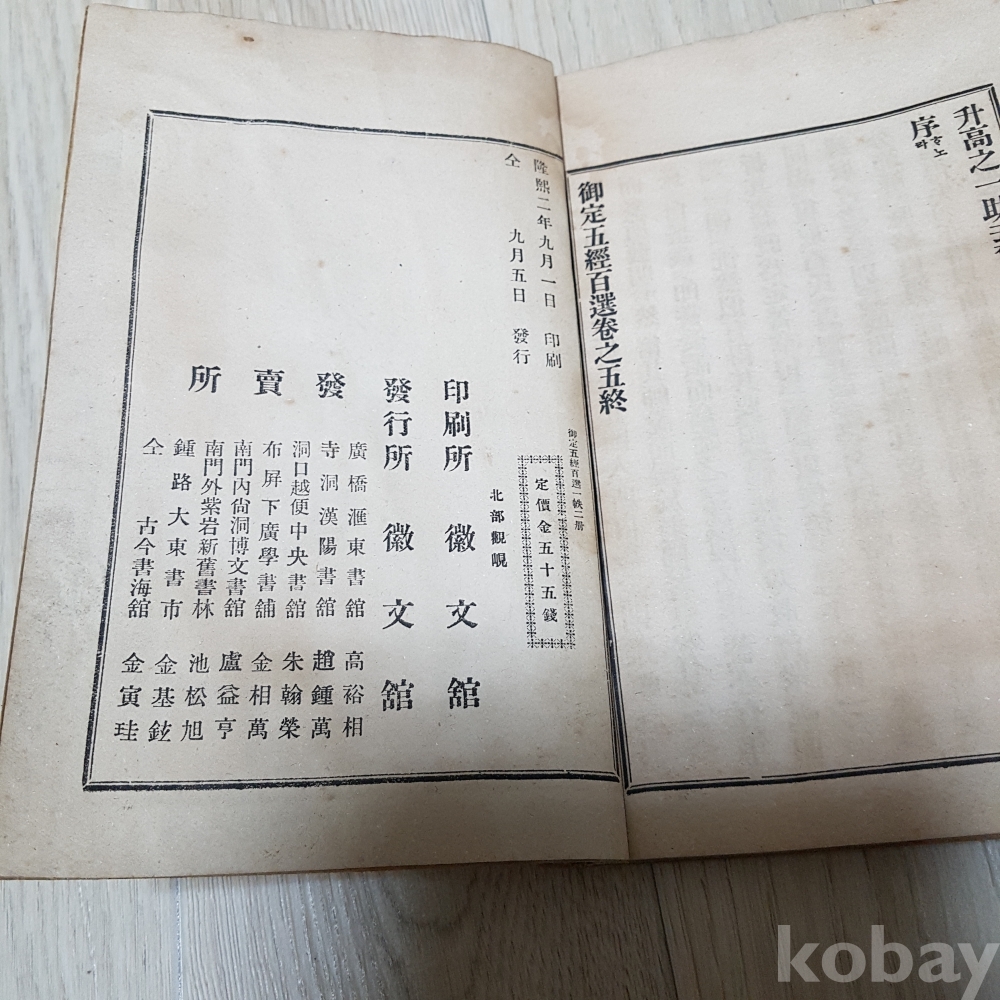 升高之一助云
序ᄒᆞ노라
御定五經百選卷之五終
隆熙二年九月一日 印刷
仝 九月五日 發行
御定五經百選一帙二册
定價金五十五錢
北部觀峴
印刷所 徽文舘
發行所 徽文舘
發賣所
廣橋滙東書舘 高裕相
寺洞漢陽書舘 趙鍾萬
洞口越便中央書舘 朱翰榮
布屏下廣學書舖 金相萬
南門內尙洞博文書舘 盧益亨
南門外紫岩新舊書林 池松旭
鍾路大東書市 金基鉉
仝 古今書海舘 金寅珪
kobay